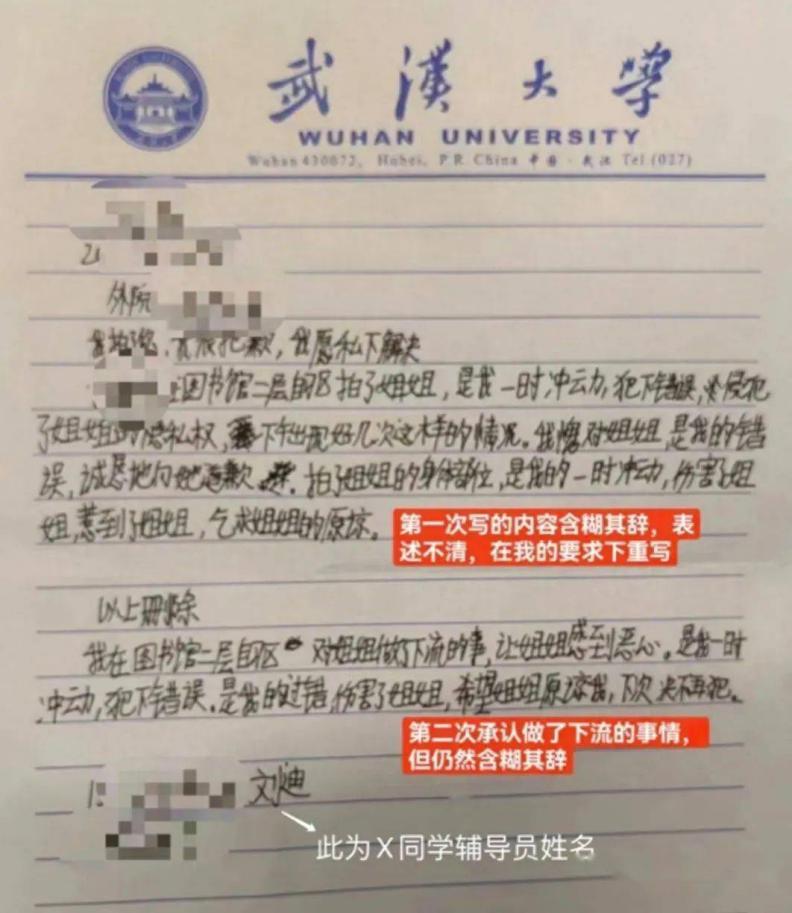 武漢大学
WUHAN UNIVERSITY
Wuhan 430072, Hubei, P.R. China 中国·武汉 Tel.(027)
外院
道歉，我愿私下解决
图书馆二层自区拍了姐姐，是我一时冲动，犯下错误，侵犯
了姐姐的隐私权，下午出现好几次这样的情况。我愧对姐姐，是我的错
误，诚恳地向她道歉。拍了姐姐的身体部位，是我的一时冲动，伤害了姐
姐，惹到了姐姐，乞求姐姐的原谅。
第一次写的内容含糊其辞，表
述不清，在我的要求下重写
以上删除
我在图书馆二层自区对姐姐做了下流的事，让姐姐感到恶心。是我一时
冲动，犯下错误。是我的过错伤害了姐姐，希望姐姐原谅我，下次决不再犯。
第二次承认做了下流的事情，
但仍然含糊其辞
此为X同学辅导员姓名